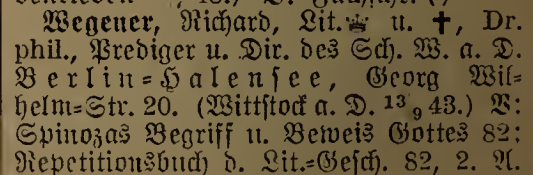 Wegener, Richard, Lit. ♛ u. ✝, Dr.
phil., Prediger u. Dir. des Sch. W. a. D.
Berlin=Halensee, Georg Wil=
helm=Str. 20. (Wittstock a. D. 13/9 43.) V:
Spinozas Begriff u. Beweis Gottes 82:
Repetitionsbuch d. Lit.=Gesch. 82, 2. A.